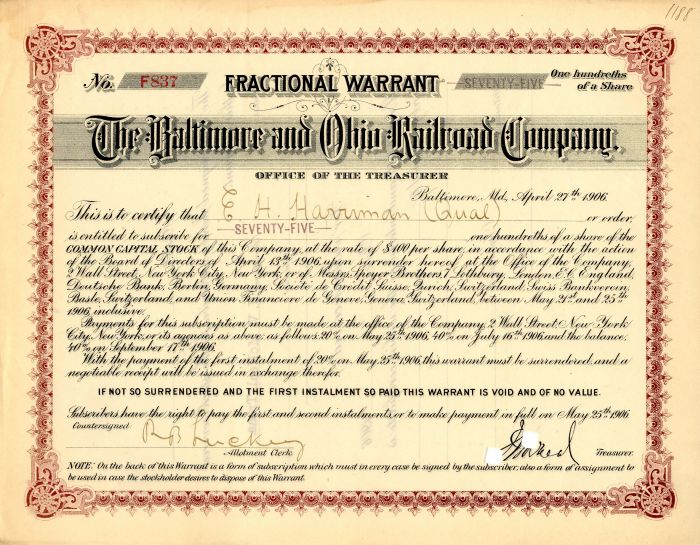 1188
No. F837 FRACTIONAL WARRANT SEVENTY-FIVE One hundredths of a Share
The Baltimore and Ohio Railroad Company.
OFFICE OF THE TREASURER
Baltimore, Md., April 27th 1906.
This is to certify that E. H. Harriman (Gual) or order,
is entitled to subscribe for SEVENTY-FIVE one hundredths of a share of the
COMMON CAPITAL STOCK of this Company, at the rate of $100 per share, in accordance with the action
of the Board of Directors of April 13th 1906, upon surrender hereof at the Office of the Company,
2 Wall Street, New York City, New York, or of Messrs. Speyer Brothers, 7 Lothbury, London, E.C. England,
Deutsche Bank, Berlin, Germany, Société de Crédit Suisse, Zurich, Switzerland, Swiss Bankverein,
Basle, Switzerland, and Union Financiere de Geneve, Geneva, Switzerland, between May 21st and 25th
1906, inclusive.
Payments for this subscription must be made at the office of the Company, 2 Wall Street, New York
City, New York, or its agencies as above, as follows: 20% on May 25th 1906, 40% on July 16th 1906, and the balance,
40% on September 17th 1906.
With the payment of the first instalment of 20% on May 25th 1906, this warrant must be surrendered, and a
negotiable receipt will be issued in exchange therefor.
IF NOT SO SURRENDERED AND THE FIRST INSTALMENT SO PAID THIS WARRANT IS VOID AND OF NO VALUE.
Subscribers have the right to pay the first and second instalments, or to make payment in full on May 25th 1906.
Countersigned
Allotment Clerk Treasurer.
NOTE: On the back of this Warrant is a form of subscription which must in every case be signed by the subscriber, also a form of assignment to
be used in case the stockholder desires to dispose of this Warrant.